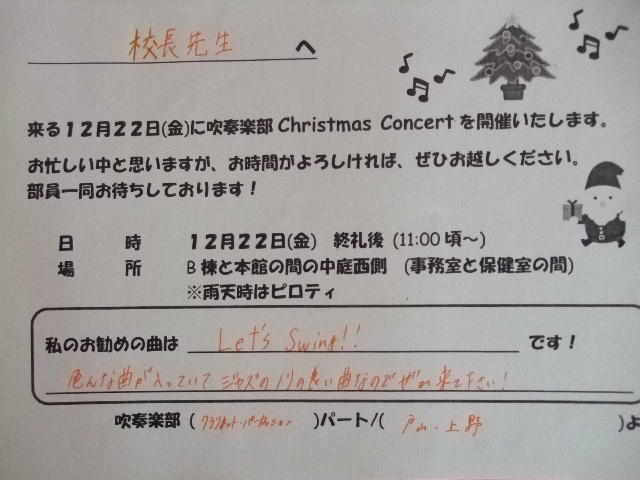 校長先生 へ
来る12月22日(金)に吹奏楽部 Christmas Concert を開催いたします。
お忙しい中と思いますが、お時間がよろしければ、ぜひお越しください。
部員一同お待ちしております！
日　時　12月22日(金)　終礼後 (11:00 頃～)
場　所　B 棟と本館の間の中庭西側　(事務室と保健室の間)
※雨天時はピロティ
私のお勧めの曲は Let's Swing!! です！
色んな曲が入っていてジャズのノリの良い曲なのでぜひ来て下さい！
吹奏楽部 ( クラリネット・パーカッション )パート/( 戸山・上野 )よ